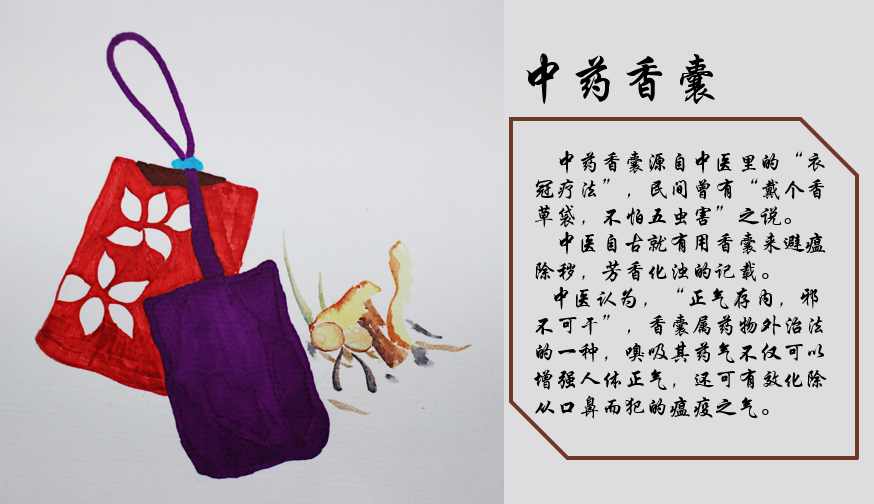 中药香囊
中药香囊源自中医里的“衣
冠疗法”，民间曾有“戴个香
草袋，不怕五虫害”之说。
中医自古就有用香囊来避瘟
除秽，芳香化浊的记载。
中医认为，“正气存内，邪
不可干”，香囊属药物外治法
的一种，嗅吸其药气不仅可以
增强人体正气，还可有效化除
从口鼻而犯的瘟疫之气。